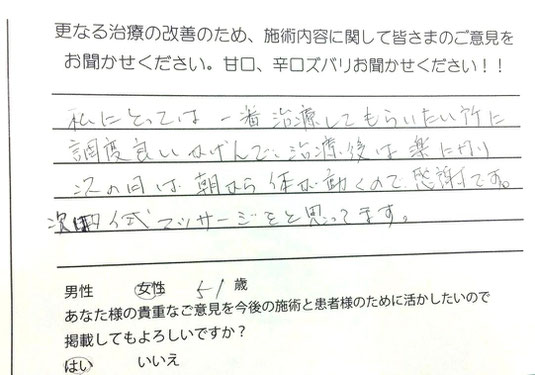 更なる治療の改善のため、施術内容に関して皆さまのご意見を
お聞かせください。甘口、辛口ズバリお聞かせください！！
私にとっては一番治療してもらいたい所に
調度良いかげんで、治療後は楽になり
次の日は朝から体が動くので感謝です。
次回 マッサージをと思ってます。
男性 女性 51歳
あなた様の貴重なご意見を今後の施術と患者様のために活かしたいので
掲載してもよろしいですか？
はい いいえ